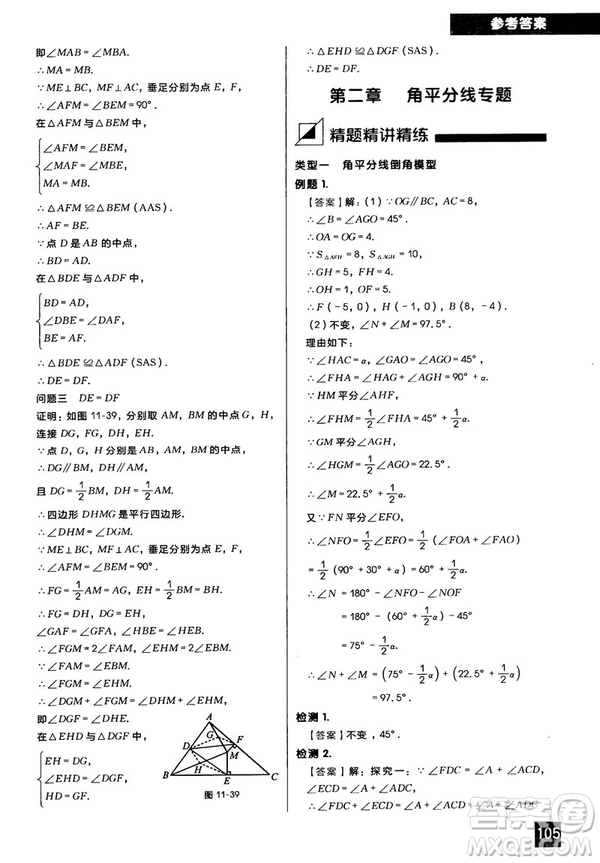 参考答案
即∠MAB=∠MBA.
∴MA=MB.
∵ME⊥BC，MF⊥AC，垂足分别为点E，F，
∴∠AFM=∠BEM=90°.
在△AFM与△BEM中，
∠AFM=∠BEM，
∠MAF=∠MBE，
MA=MB，
∴△AFM≌△BEM(AAS).
∴AF=BE.
∵点D是AB的中点，
∴BD=AD.
在△BDE与△ADF中，
BD=AD，
∠DBE=∠DAF，
BE=AF，
∴△BDE≌△ADF(SAS).
∴DE=DF.
问题三 DE=DF
证明：如图11-39，分别取AM，BM的中点G，H，
连接DG，FG，DH，EH.
∵点D是AB的中点，
∴DG∥BM，DH∥AM，
且DG=1/2BM，DH=1/2AM.
∴四边形DHMG是平行四边形.
∴∠DHM=∠DGM.
∵ME⊥BC，MF⊥AC，垂足分别为点E，F，
∴∠AFM=∠BEM=90°.
∴FG=1/2AM=AG，EH=1/2BM=BH.
∴FG=DH，DG=EH，
∠GAF=∠GFA，∠HBE=∠HEB.
∴∠FGM=2∠FAM，∠EHM=2∠EBM.
∵∠FAM=∠EBM.
∴∠FGM=∠EHM.
∴∠DGM+∠FGM=∠DHM+∠EHM，
即∠DGF=∠DHE.
在△EHD与△DGF中，
EH=DG，
∠EHD=∠DGF，
HD=GF，
A
G
F
D
M
H
B
E
C
图11-39
∴△EHD≌△DGF(SAS).
∴DE=DF.
第二章 角平分线专题
精题精讲精练
类型一 角平分线倒角模型
例题1.
【答案】解：(1)∵OG∥BC，AC=8，
∴∠B=∠AGO=45°.
∴OA=OG=4.
∵S△AFH=8，S△AGH=10，
∴GH=5，FH=4.
∴F(-5，0)，H(-1，0)，B(-8，-4).
(2)不变，∠N+∠M=97.5°.
理由如下：
∵∠HAC=α，∠GAO=∠AGO=45°，
∴∠AHF=∠FAC=90°+α.
∵HM平分∠AHF，
∴∠FHM=1/2∠FAH=45°+1/2α.
∵GM平分∠AGH，
∴∠HGM=1/2∠AGO=22.5°.
∴∠M=22.5°+1/2α.
又∵FN平分∠EFO，
∴∠NFO=1/2∠EFO=1/2(∠FOA+∠FAO)
=1/2(90°+30°+α)=60°+1/2α.
∴∠N=180°-∠NFO-∠NOF
=180°-(75°-1/2α)
∴∠N+∠M=(75°-1/2α)+(22.5°+1/2α)
=97.5°.
检测1.
【答案】不变，45°.
检测2.
【答案】解：探究一：∵∠FDC=∠A+∠ACD，
∠ECD=∠A+∠ADC，
∴∠FDC+∠ECD=∠A+∠ADC+∠A+∠ACD
105
答案圈
MXQE.COM